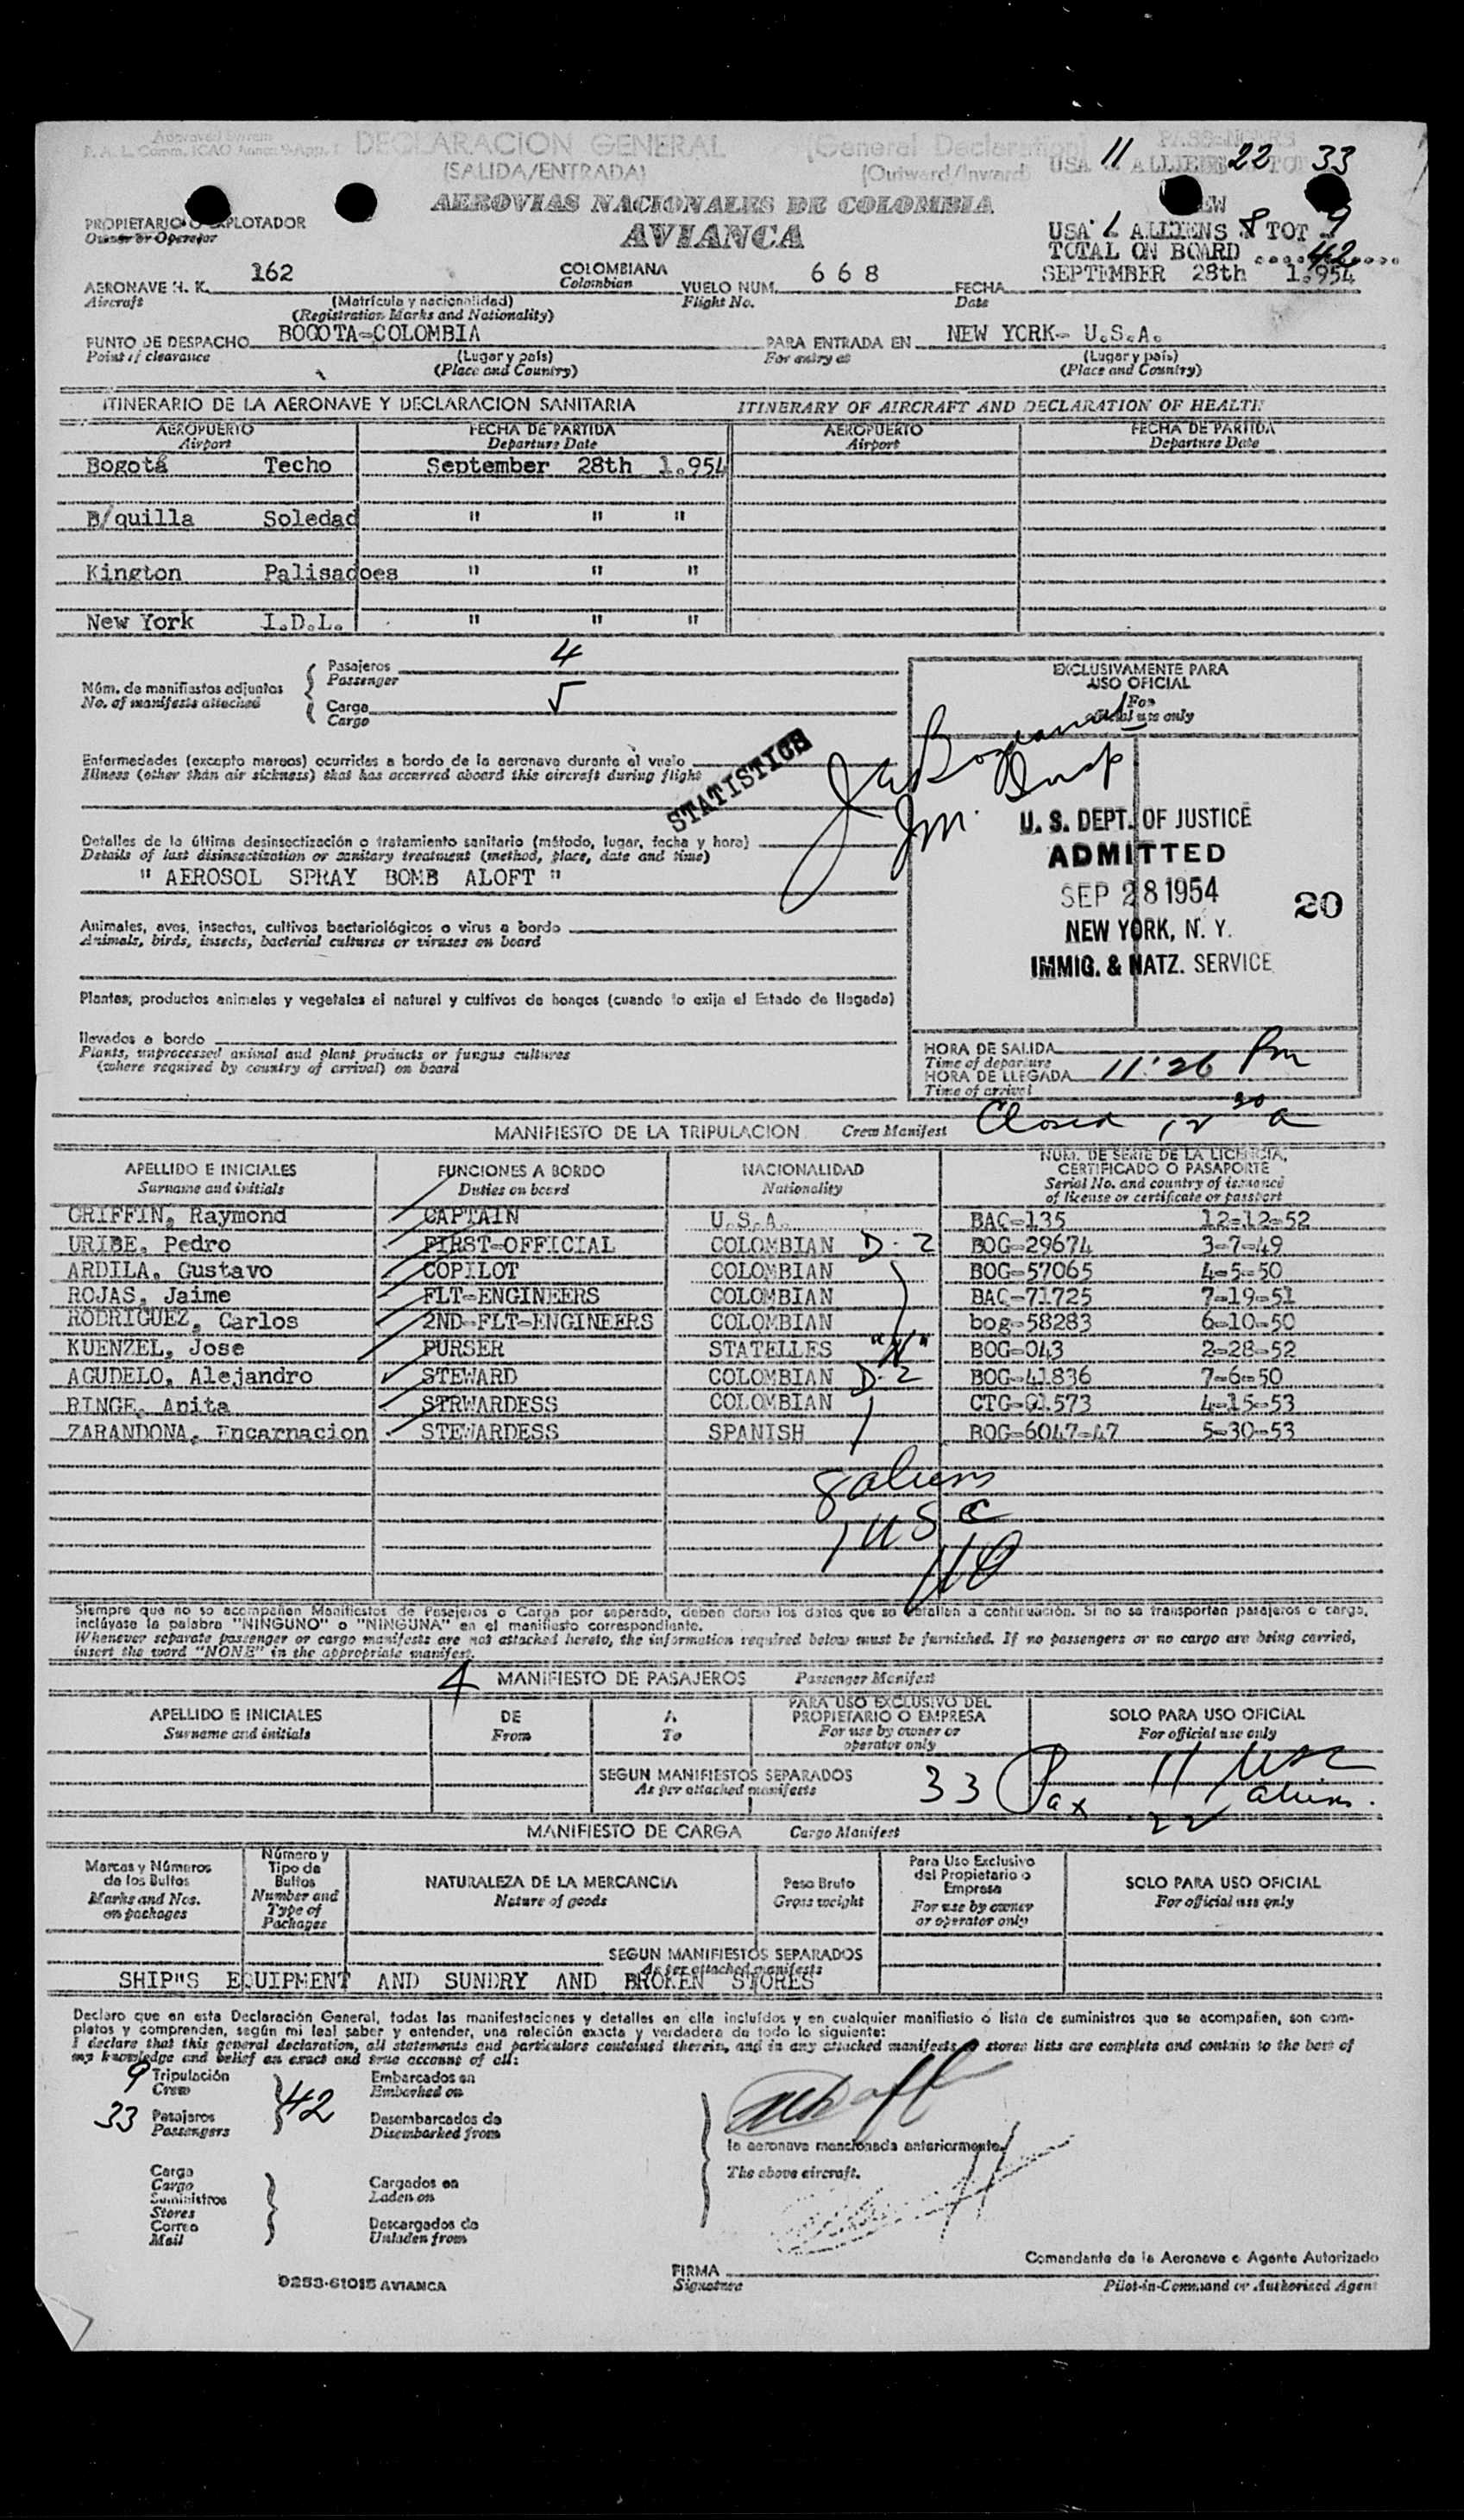 DECLARACION GENERAL (General Declaration) PASSENGERS
(SALIDA/ENTRADA) (Outward/Inward) USA 11 ALLIENS 22 TOT 33
AEROVIAS NACIONALES DE COLOMBIA
AVIANCA
PROPIETARIO O EXPLOTADOR
Owner or Operator
USA 1 ALLIENS 8 TOT 9
TOTAL ON BOARD 42
AERONAVE H. K. 162 COLOMBIANA VUELO NUM. 668 FECHA SEPTEMBER 28th 1.954
Aircraft (Matrícula y nacionalidad) Colombian Flight No. Date
(Registration Marks and Nationality)
PUNTO DE DESPACHO BOGOTA-COLOMBIA PARA ENTRADA EN NEW YORK- U.S.A.
Point of clearance (Lugar y país) For entry at (Lugar y país)
(Place and Country) (Place and Country)
ITINERARIO DE LA AERONAVE Y DECLARACION SANITARIA ITINERARY OF AIRCRAFT AND DECLARATION OF HEALTH
AEROPUERTO FECHA DE PARTIDA AEROPUERTO FECHA DE PARTIDA
Airport Departure Date Airport Departure Date
Bogotá Techo September 28th 1.954
B/quilla Soledad " " "
Kington Palisadoes " " "
New York I.D.L. " " "
Núm. de manifiestos adjuntos
No. of manifests attached
Pasajeros 4
Passenger
Carga 5
Cargo
EXCLUSIVAMENTE PARA
USO OFICIAL
For
official use only
Enfermedades (excepto mareos) ocurridas a bordo de la aeronave durante el vuelo
Illness (other than air sickness) that has occurred aboard this aircraft during flight
STATISTICS
Detalles de la última desinsectización o tratamiento sanitario (método, lugar, fecha y hora)
Details of last disinsectization or sanitary treatment (method, place, date and time)
" AEROSOL SPRAY BOMB ALOFT "
Animales, aves, insectos, cultivos bacteriológicos o virus a bordo
Animals, birds, insects, bacterial cultures or viruses on board
Plantas, productos animales y vegetales al natural y cultivos de hongos (cuando lo exija el Estado de llegada)
llevados a bordo
Plants, unprocessed animal and plant products or fungus cultures
(where required by country of arrival) on board
U. S. DEPT. OF JUSTICE
ADMITTED
SEP 28 1954 20
NEW YORK, N. Y.
IMMIG. & NATZ. SERVICE
HORA DE SALIDA
Time of departure
HORA DE LLEGADA 11:26 Pm
Time of arrival
Closed 12 30 a
MANIFIESTO DE LA TRIPULACION Crew Manifest
APELLIDO E INICIALES FUNCIONES A BORDO NACIONALIDAD NUM. DE SERIE DE LA LICENCIA,
CERTIFICADO O PASAPORTE
Surname and initials Duties on board Nationality Serial No. and country of issuance
of license or certificate or passport
GRIFFIN, Raymond CAPTAIN U.S.A. BAC-135 12-12-52
URIBE, Pedro FIRST-OFFICIAL COLOMBIAN D-2 BOG-29674 3-7-49
ARDILA, Gustavo COPILOT COLOMBIAN BOG-57065 4-5-50
ROJAS, Jaime FLT-ENGINEERS COLOMBIAN BAC-71725 7-19-51
RODRIGUEZ, Carlos 2ND-FLT-ENGINEERS COLOMBIAN bog-58283 6-10-50
KUENZEL, Jose PURSER STATELLES BOG-043 2-28-52
AGUDELO, Alejandro STEWARD COLOMBIAN D-2 BOG-41836 7-6-50
BINGE, Anita STRWARDESS COLOMBIAN CTG-01573 4-15-53
ZARANDONA, Encarnacion STEWARDESS SPANISH BOG-6047-47 5-30-53
8 aliens
1 USC
Siempre que no se acompañen Manifiestos de Pasajeros o Carga por separado, deben darse los datos que se detallan a continuación. Si no se transportan pasajeros o carga,
inclúyase la palabra "NINGUNO" o "NINGUNA" en el manifiesto correspondiente.
Whenever separate passenger or cargo manifests are not attached hereto, the information required below must be furnished. If no passengers or no cargo are being carried,
insert the word "NONE" in the appropriate manifest.
4 MANIFIESTO DE PASAJEROS Passenger Manifest
APELLIDO E INICIALES DE A PARA USO EXCLUSIVO DEL
PROPIETARIO O EMPRESA SOLO PARA USO OFICIAL
Surname and initials From To For use by owner or
operator only For official use only
SEGUN MANIFIESTOS SEPARADOS
As per attached manifests
33 Pax 11 USC
22 aliens.
MANIFIESTO DE CARGA Cargo Manifest
Marcas y Números
de los Bultos
Marks and Nos.
on packages
Número y
Tipo de
Bultos
Number and
Type of
Packages
NATURALEZA DE LA MERCANCIA
Nature of goods
Peso Bruto
Gross weight
Para Uso Exclusivo
del Propietario o
Empresa
For use by owner
or operator only
SOLO PARA USO OFICIAL
For official use only
SEGUN MANIFIESTOS SEPARADOS
As per attached manifests
SHIP"S EQUIPMENT AND SUNDRY AND BROKEN STORES
Declaro que en esta Declaración General, todas las manifestaciones y detalles en ella incluídos y en cualquier manifiesto o lista de suministros que se acompañen, son com-
pletos y comprenden, según mi leal saber y entender, una relación exacta y verdadera de todo lo siguiente:
I declare that this general declaration, all statements and particulars contained therein, and in any attached manifests or stores lists are complete and contain to the best of
my knowledge and belief an exact and true account of all:
9 Tripulación
Crew
33 Pasajeros
Passengers
42
Embarcados en
Embarked on
Desembarcados de
Disembarked from
la aeronave mencionada anteriormente.
The above aircraft.
Carga
Cargo
Suministros
Stores
Correo
Mail
Cargados en
Laden on
Descargados de
Unladen from
Comandante de la Aeronave o Agente Autorizado
FIRMA
Signature
Pilot-in-Command or Authorised Agent
9253-61015 AVIANCA